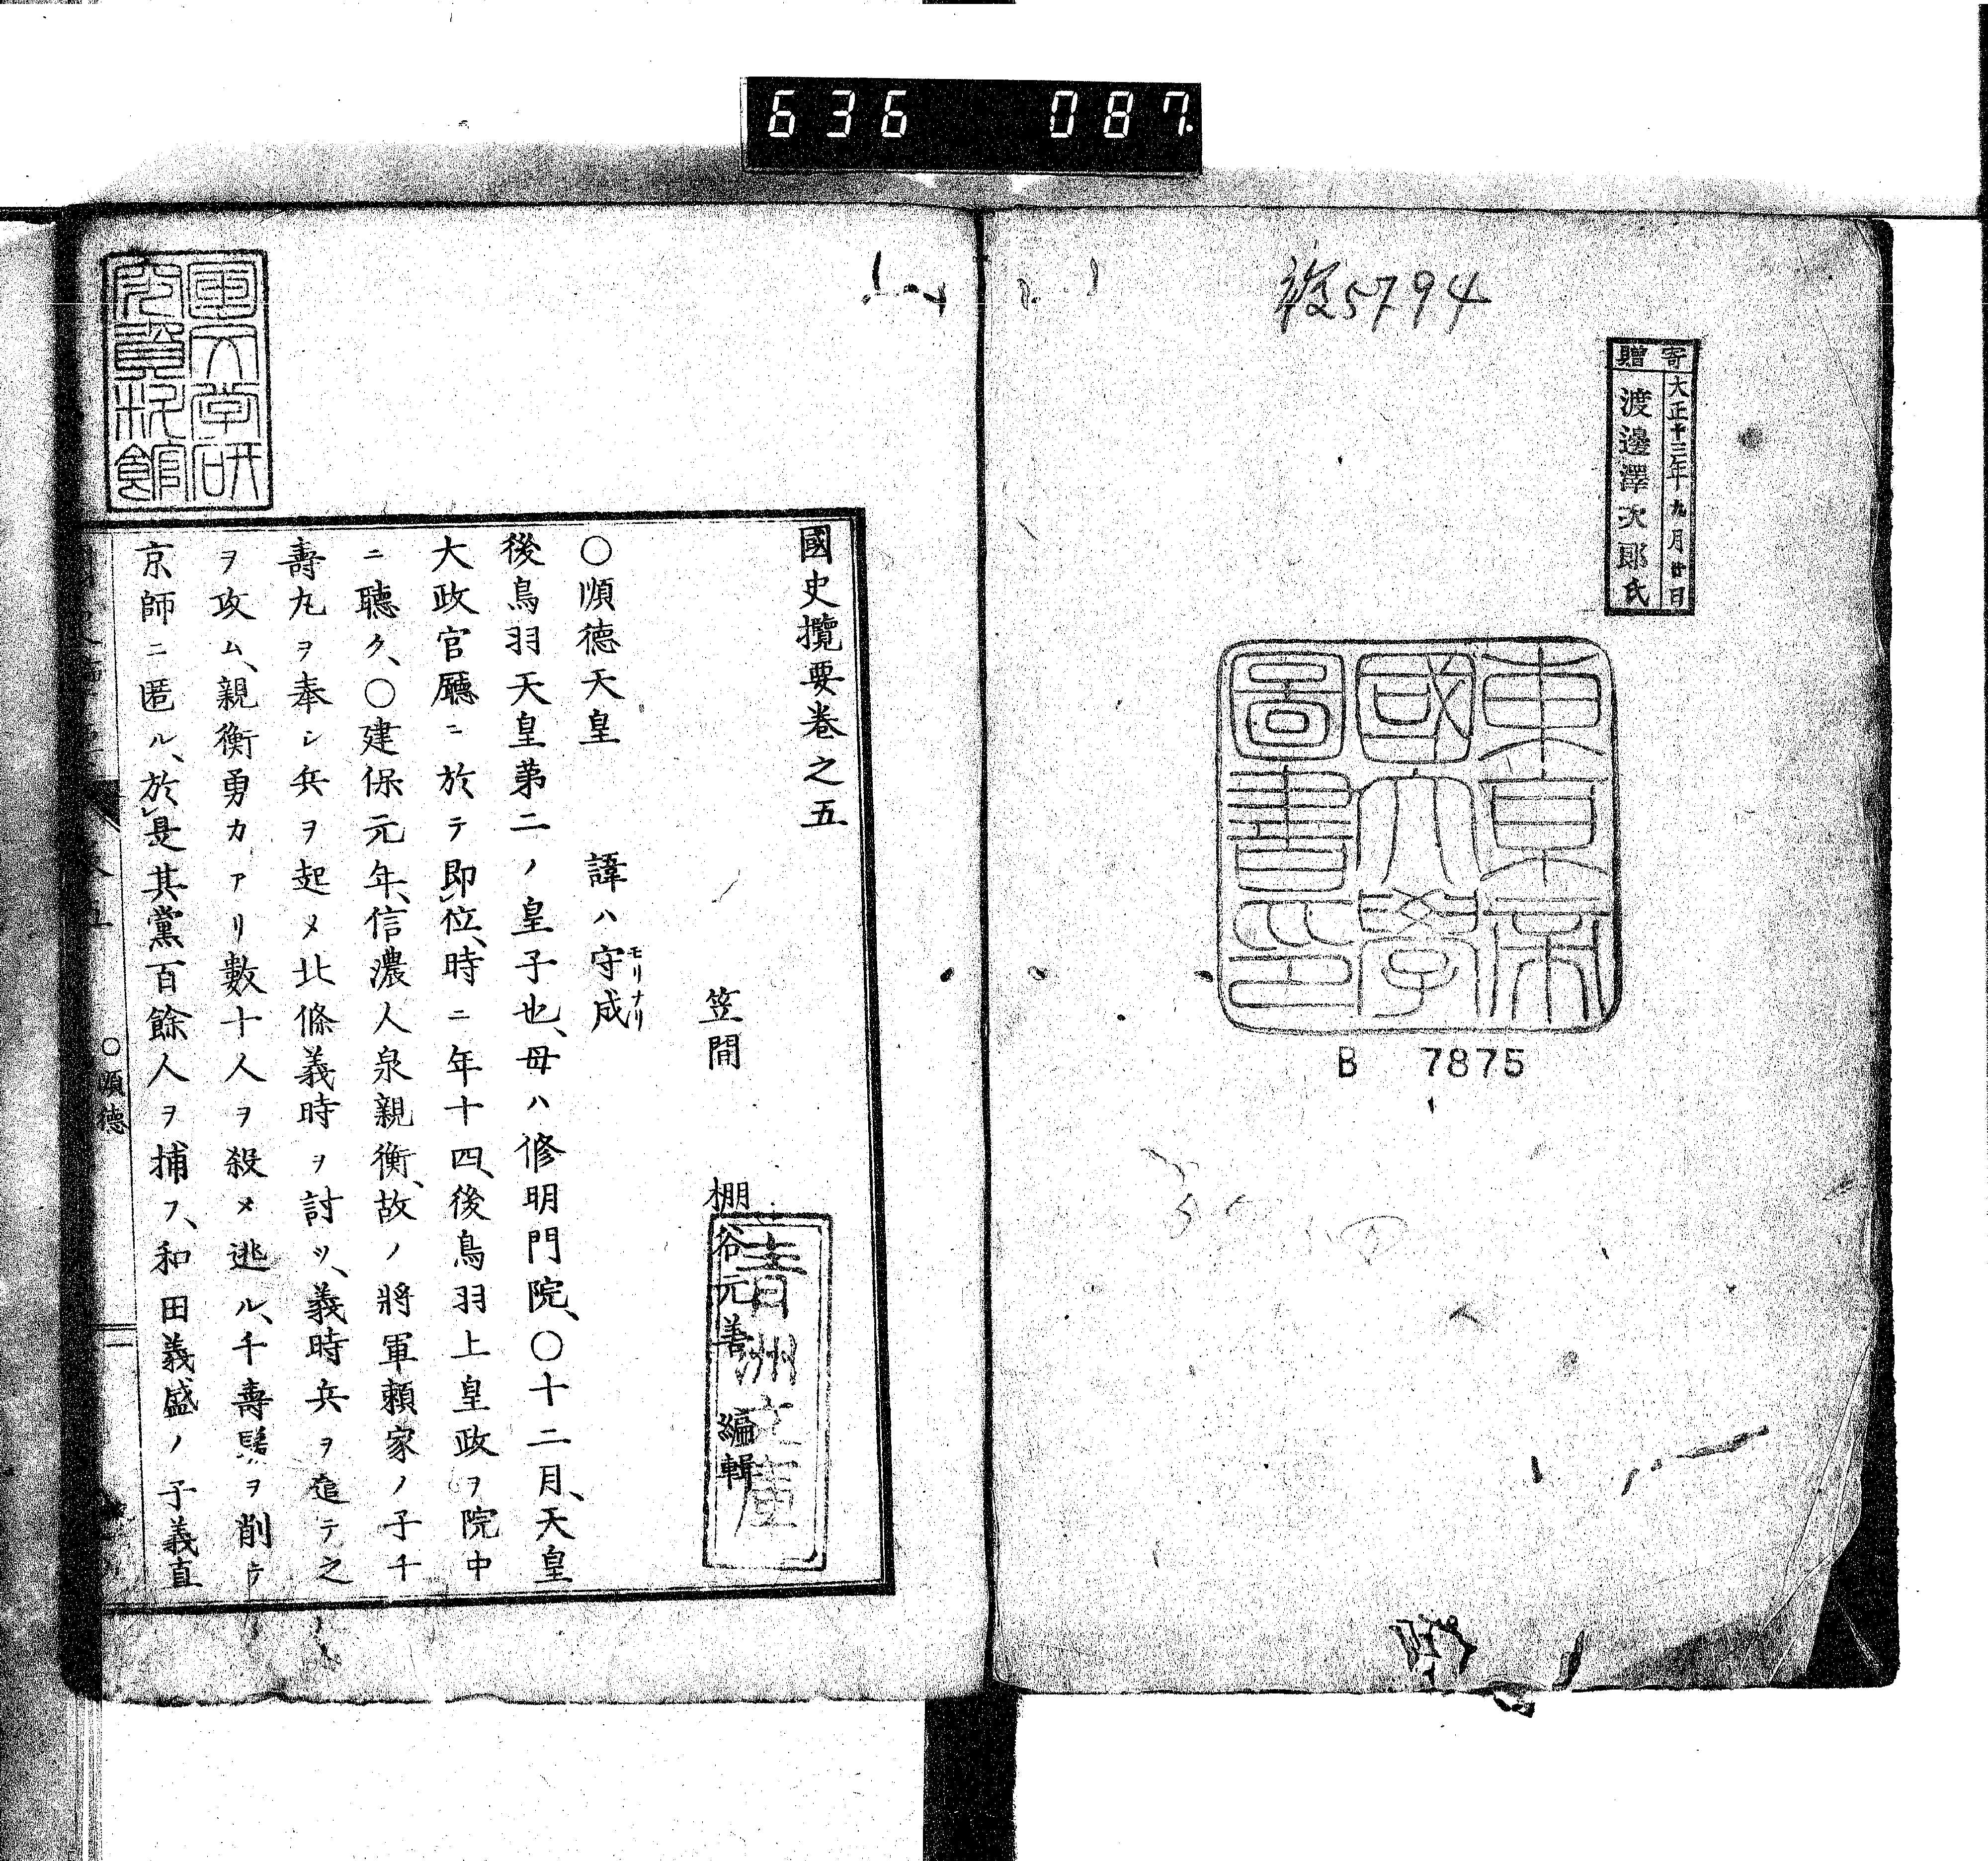 636 087.
複5794
寄贈
大正十三年九月廿日
渡邊澤次郎氏
東京帝
國大學
圖書印
B 7875
國史攬要卷之五
笠間 棚谷元善 編輯
青洲文庫
○順德天皇 諱ハ守成
モリナリ
後鳥羽天皇第二ノ皇子也、母ハ修明門院、○十二月、天皇
大政官廳ニ於テ即位、時ニ年十四、後鳥羽上皇政ヲ院中
ニ聽ク、○建保元年、信濃人泉親衡、故ノ將軍賴家ノ子千
壽丸ヲ奉シ兵ヲ起メ北條義時ヲ討ツ、義時兵ヲ遣テ之
ヲ攻ム、親衡勇力アリ數十人ヲ殺メ逃ル、千壽髮ヲ削テ
京師ニ匿ル、於是其黨百餘人ヲ捕フ、和田義盛ノ子義直
○順德
一
国文学研
究資料館